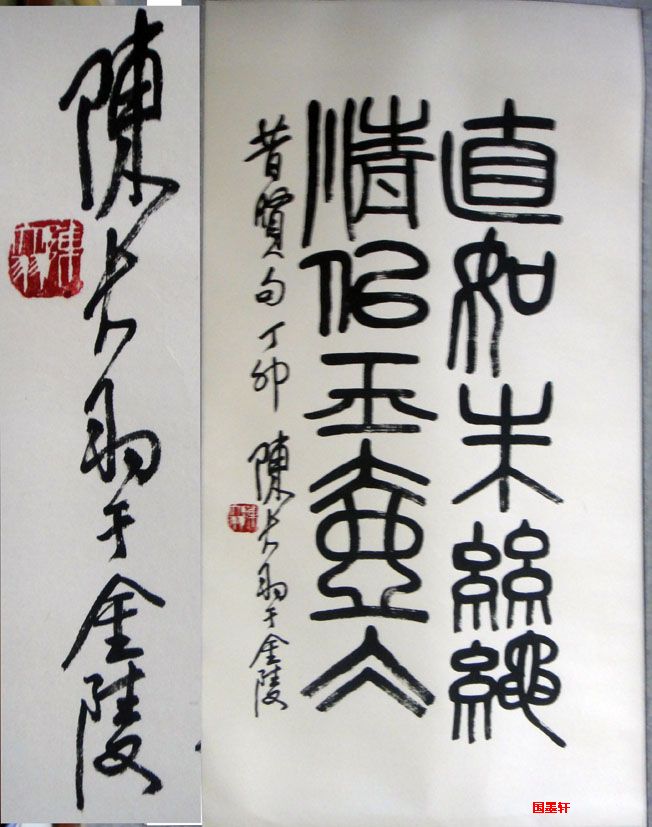 陳大羽于金陵
直如朱絲繩
清似玉壺冰
昔賢句丁卯 陳大羽于金陵
国墨轩